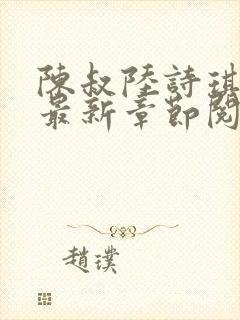 陳叔陸詩琪
最新章節閱
趙璞